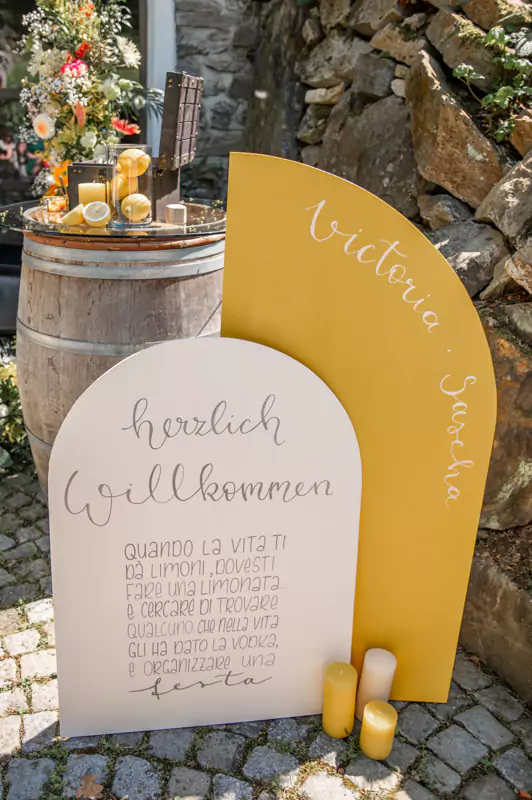 Victoria · Sascha
herzlich
Willkommen
QUANDO LA VITA TI
DÀ LIMONI, DOVESTI
FARE UNA LIMONATA
E CERCARE DI TROVARE
QUALCUNO CHE NELLA VITA
GLI HA DATO LA VODKA,
E ORGANIZZARE UNA
festa